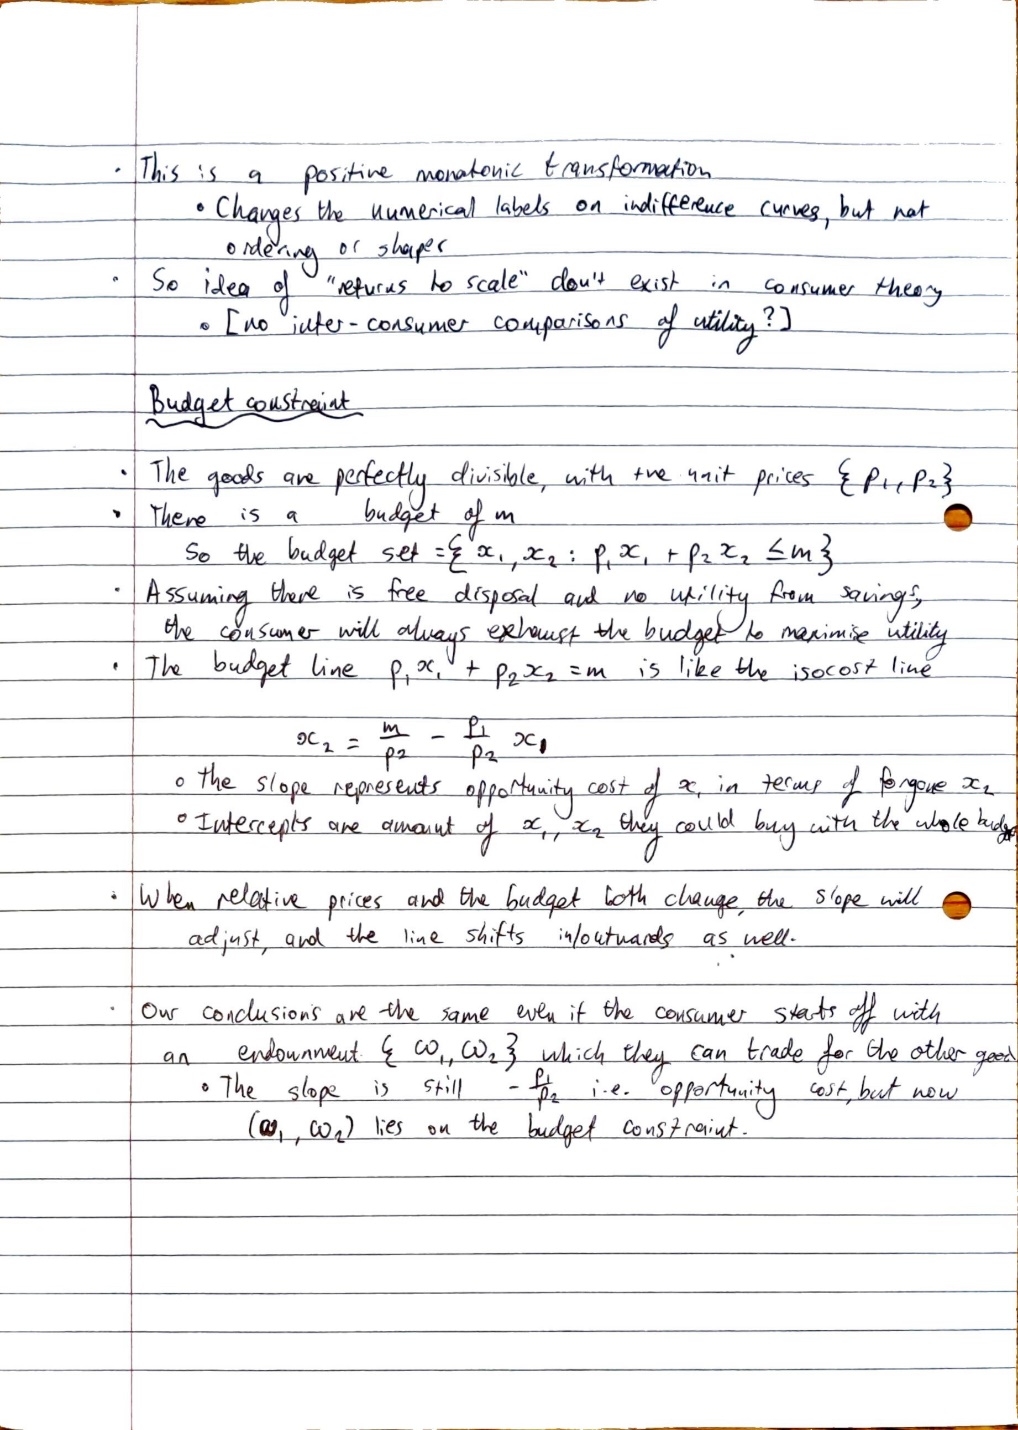 · This is a positive monotonic transformation
• Changes the numerical labels on indifference curves, but not
ordering or shapes
· So idea of "returns to scale" don't exist in consumer theory
• [no inter-consumer comparisons of utility?]
Budget constraint
· The goods are perfectly divisible, with +ve unit prices {p₁, p₂}
· There is a budget of m
So the budget set = {x₁, x₂ : p₁x₁ + p₂x₂ ≤ m}
· Assuming there is free disposal and no utility from savings,
the consumer will always exhaust the budget to maximise utility
· The budget line p₁x₁ + p₂x₂ = m is like the isocost line
x₂ = m/p₂ - p₁/p₂ x₁
∘ The slope represents opportunity cost of x₁ in terms of forgone x₂
∘ Intercepts are amount of x₁, x₂ they could buy with the whole budget
· When relative prices and the budget both change, the slope will
adjust, and the line shifts in/outwards as well.
· Our conclusions are the same even if the consumer starts off with
an endownment {ω₁, ω₂} which they can trade for the other good
• The slope is still - p₁/p₂ i.e. opportunity cost, but now
(ω₁, ω₂) lies on the budget constraint.